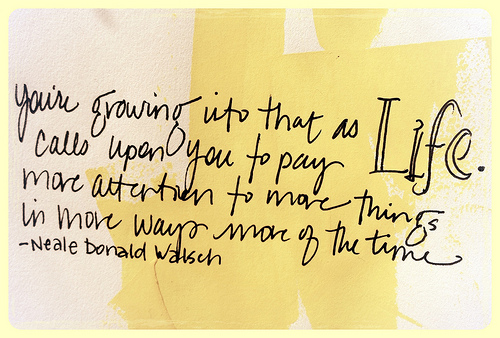 you're growing into that as Life.
calls upon you to pay
more attention to more things
in more ways more of the time
-Neale Donald Walsch